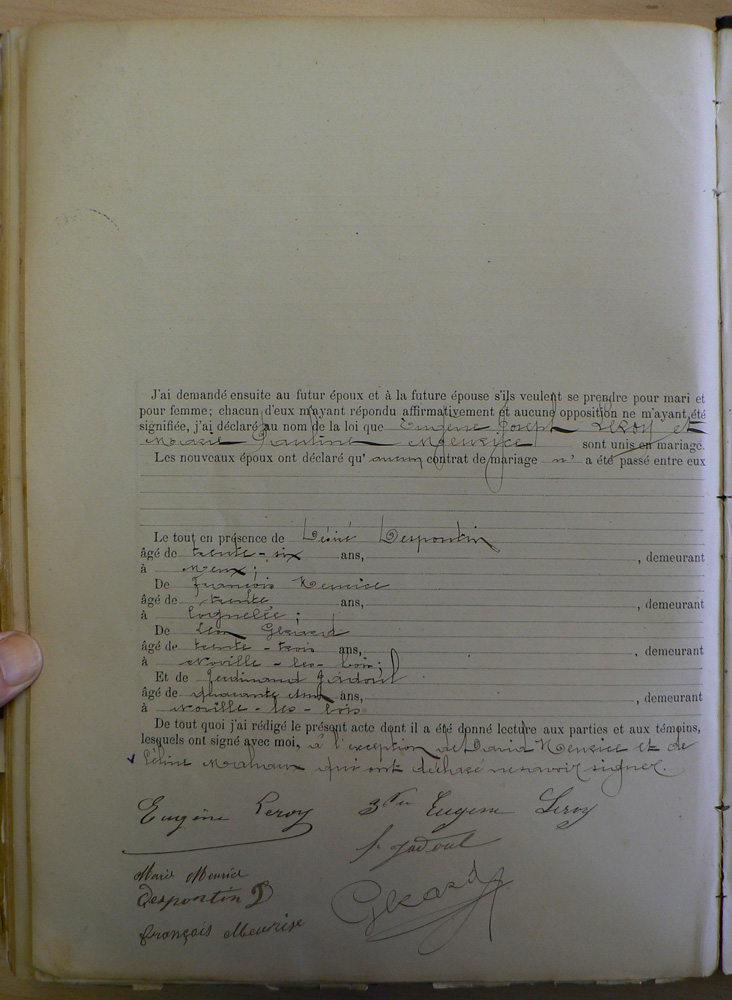 J'ai demandé ensuite au futur époux et à la future épouse s'ils veulent se prendre pour mari et
pour femme; chacun d'eux m'ayant répondu affirmativement et aucune opposition ne m'ayant été
signifiée, j'ai déclaré au nom de la loi que Eugène Joseph Leroy et
Marie Pauline Meurice sont unis en mariage.
Les nouveaux époux ont déclaré qu' aucun contrat de mariage n' a été passé entre eux
Le tout en présence de Désiré Despontin
âgé de trente-six ans, , demeurant
à Meux;
De François Meurice
âgé de trente ans, , demeurant
à
De Léon Gérard
âgé de trente-trois ans, , demeurant
à Noville-les-bois;
Et de Ferdinand Jadoul
âgé de quarante ans, , demeurant
à Noville-les-bois
De tout quoi j'ai rédigé le présent acte dont il a été donné lecture aux parties et aux témoins,
lesquels ont signé avec moi, à l'exception de David Meurice et de
qui ont déclaré ne savoir signer.
Eugène Leroy Eugène Leroy
F. Jadoul
Marie Meurice
Despontin D
Gérard
François Meurice